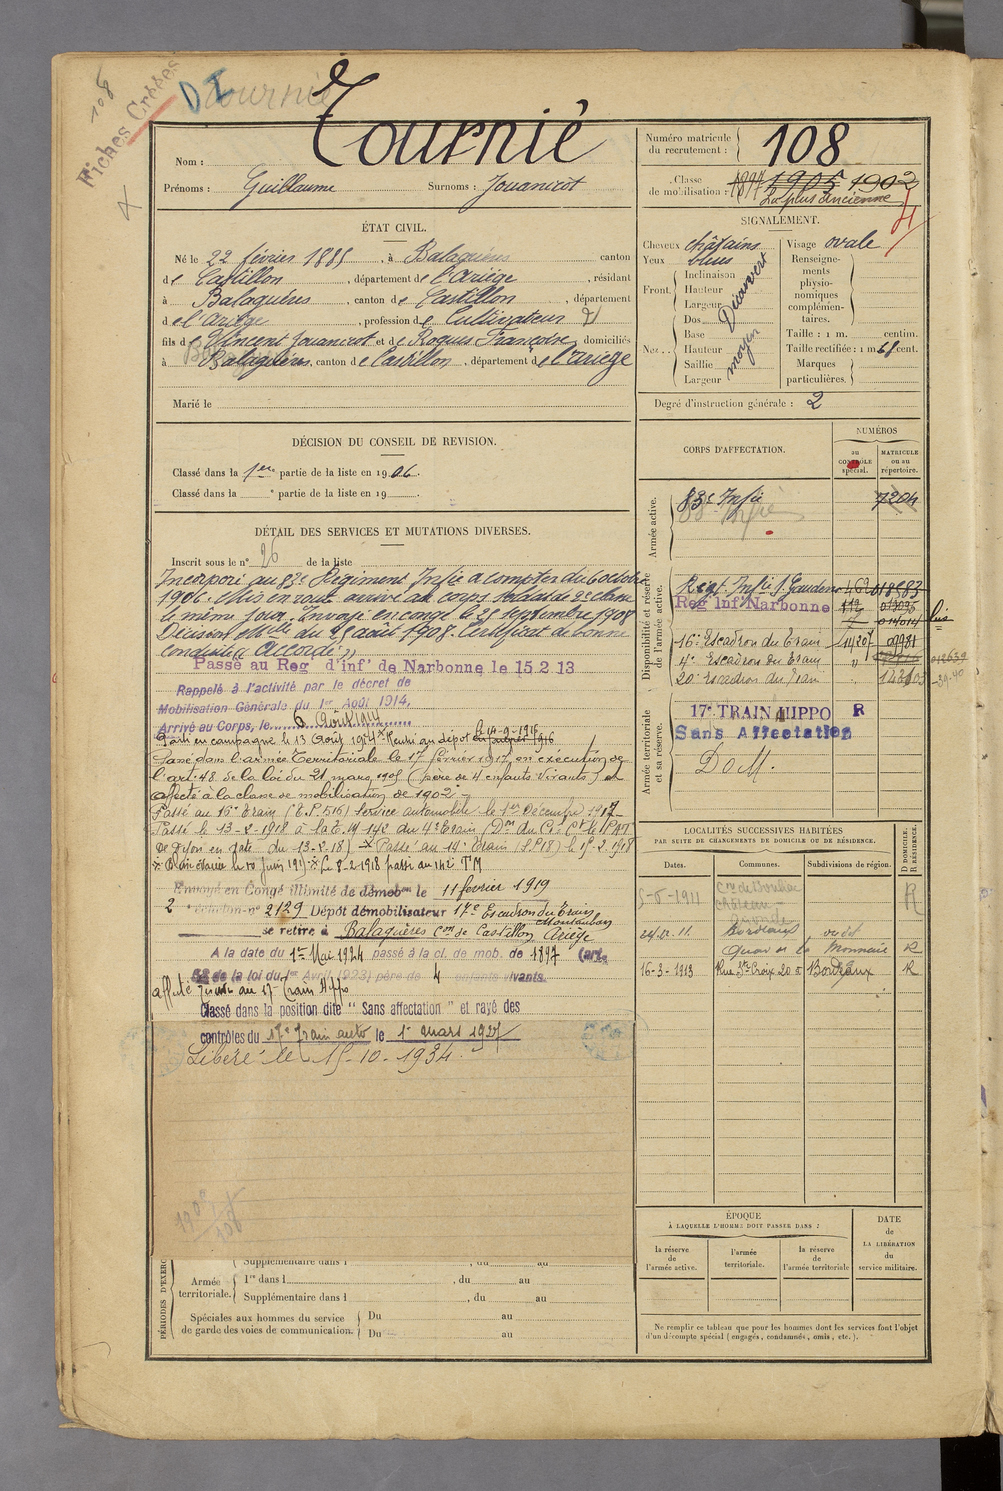 108
Fiches Créées
DI
Tournié
Tournié
Nom :
Prénoms : Guillaume Surnoms : Jouanicot
Numéro matricule
du recrutement :
108
Classe
de mobilisation : 1897 1905 1902
La plus ancienne
ÉTAT CIVIL.
Né le 22 février 1885, à Balaguères canton
de Castillon, département de l'Ariège, résidant
à Balaguères, canton de Castillon, département
d el'Ariège, profession de Cultivateur
fils de Vincent Jouanicot et de Roques Françoise, domiciliés
à Balaguères, canton de Castillon, département de l'Ariège
Marié le
SIGNALEMENT.
Cheveux châtains
Yeux bleus
Front.
Inclinaison
Hauteur
Largeur
Découvert
Nez..
Dos
Base
Hauteur
Saillie
Largeur
moyen
Visage ovale
Renseigne-
ments
physio-
nomiques
complémen-
taires.
Taille : 1 m. centim.
Taille rectifiée : 1 m 61 cent.
Marques
particulières.
Degré d'instruction générale : 2
DÉCISION DU CONSEIL DE REVISION.
Classé dans la 1ere partie de la liste en 1906.
Classé dans la ° partie de la liste en 19
DÉTAIL DES SERVICES ET MUTATIONS DIVERSES.
Inscrit sous le n° 26 de la liste
Incorporé au 83e Régiment Infie à compter du 6 octobre
1906. Mis en route arrivé au corps. Soldat de 2e classe
le même jour. Envoyé en congé le 25 septembre 1908
Décision Mlle du 25 août 1908. Certificat de bonne
conduite "Accordé"
Passé au Reg' d'inf' de Narbonne le 15.2 13
Rappelé à l'activité par le décret de
Mobilisation Générale du 1er Août 1914,
Arrivé au Corps, le 6 Août 1914
Parti en campagne le 13 Août 1914 Rentré au dépôt
Passé dans l'armée Territoriale le 17 février 1917 en exécution de
l'art. 48 de la loi du 21 mars 1905 (père de 4 enfants vivants) et
affecté à la classe de mobilisation de 1902
Passé au 16e Train (E.P. 516) Service automobile le 1er Décembre 1917
Passé le 13-2-1918 à la
de Dijon en date du 13-2-18) Passé au 14e Train (S.P 18) le 15.2.1918
Le 8-2-1918 passé au 142 TM
Envoyé en Congé illimité de démobon le 11 février 1919
2 échelon n° 2129 Dépôt démobilisateur 17e Escadron du Train
Montauban
se retire à Balaguères Con de Castillon Ariège
A la date du 1er Mai 1924 passé à la cl. de mob. de 1897 (art.
52 de la loi du 1er Avril 1923) père de 4 enfants vivants.
affecté au 17 Train Hippo
Classé dans la position dite " Sans affectation " et rayé des
contrôles du 17e Train auto le 1er mars 1927
Libéré le 15-10-1934
CORPS D'AFFECTATION.
NUMÉROS
au
CONTRÔLE
spécial.
MATRICULE
ou au
répertoire.
Armée active.
83e Infie 7204
Disponibilité et réserve
de l'armée active.
Regt. Infie St Gaudens 462 018583
Reg Inf Narbonne
bis
16e Escadron du Train
4e Escadron du Train "
20e Escadron du Train
Armée territoriale
et sa réserve.
17e TRAIN HIPPO R
Sans Affectation
DoM.
LOCALITÉS SUCCESSIVES HABITÉES
PAR SUITE DE CHANGEMENTS DE DOMICILE OU DE RÉSIDENCE.
Dates.
Communes.
Subdivisions de région.
D DOMICILE.
R RÉSIDENCE.
5-5-1911 R
24.12.11. Bordeaux
Quai de la Monnaie R
16-3-1913 Rue Ste Croix 20 à Bordeaux R
ÉPOQUE
À LAQUELLE L'HOMME DOIT PASSER DANS :
la réserve
de
l'armée active.
l'armée
territoriale.
la réserve
de
l'armée territoriale
DATE
de
LA LIBÉRATION
du
service militaire.
Ne remplir ce tableau que pour les hommes dont les services font l'objet
d'un décompte spécial (engagés, condamnés, omis, etc.).
PÉRIODES D'EXERC
Supplémentaire dans l , du au
Armée
territoriale.
1re dans l , du au
Supplémentaire dans l , du au
Spéciales aux hommes du service
de garde des voies de communication.
Du au
Du au